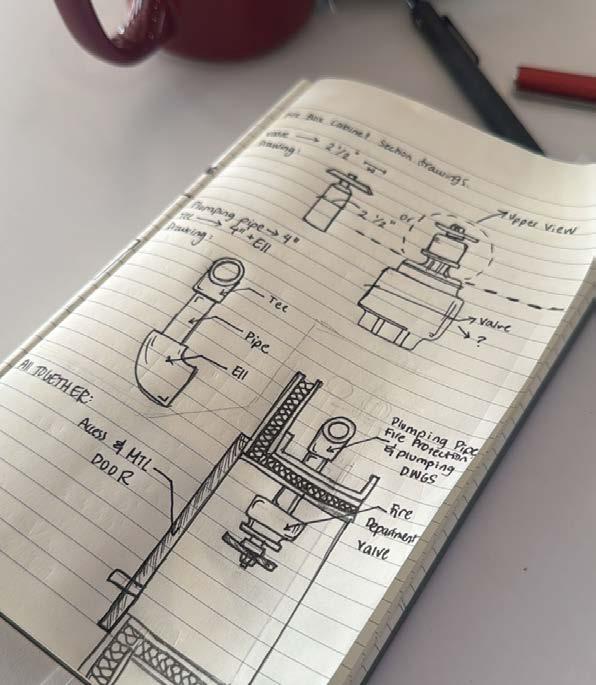 Fire Box Cabinet Section drawings
Valve → 2 1/2"
Drawing:
2 1/2"
Or
Upper View
Plumping pipe → 4"
Tee → 4" + Ell
Drawing:
Tee
Pipe
Ell
Valve
→ ?
All TOGETHER:
Access & MTL
DOOR
Plumping Pipe
Fire Protection
& plumping
DWGS
Fire
Department
Valve